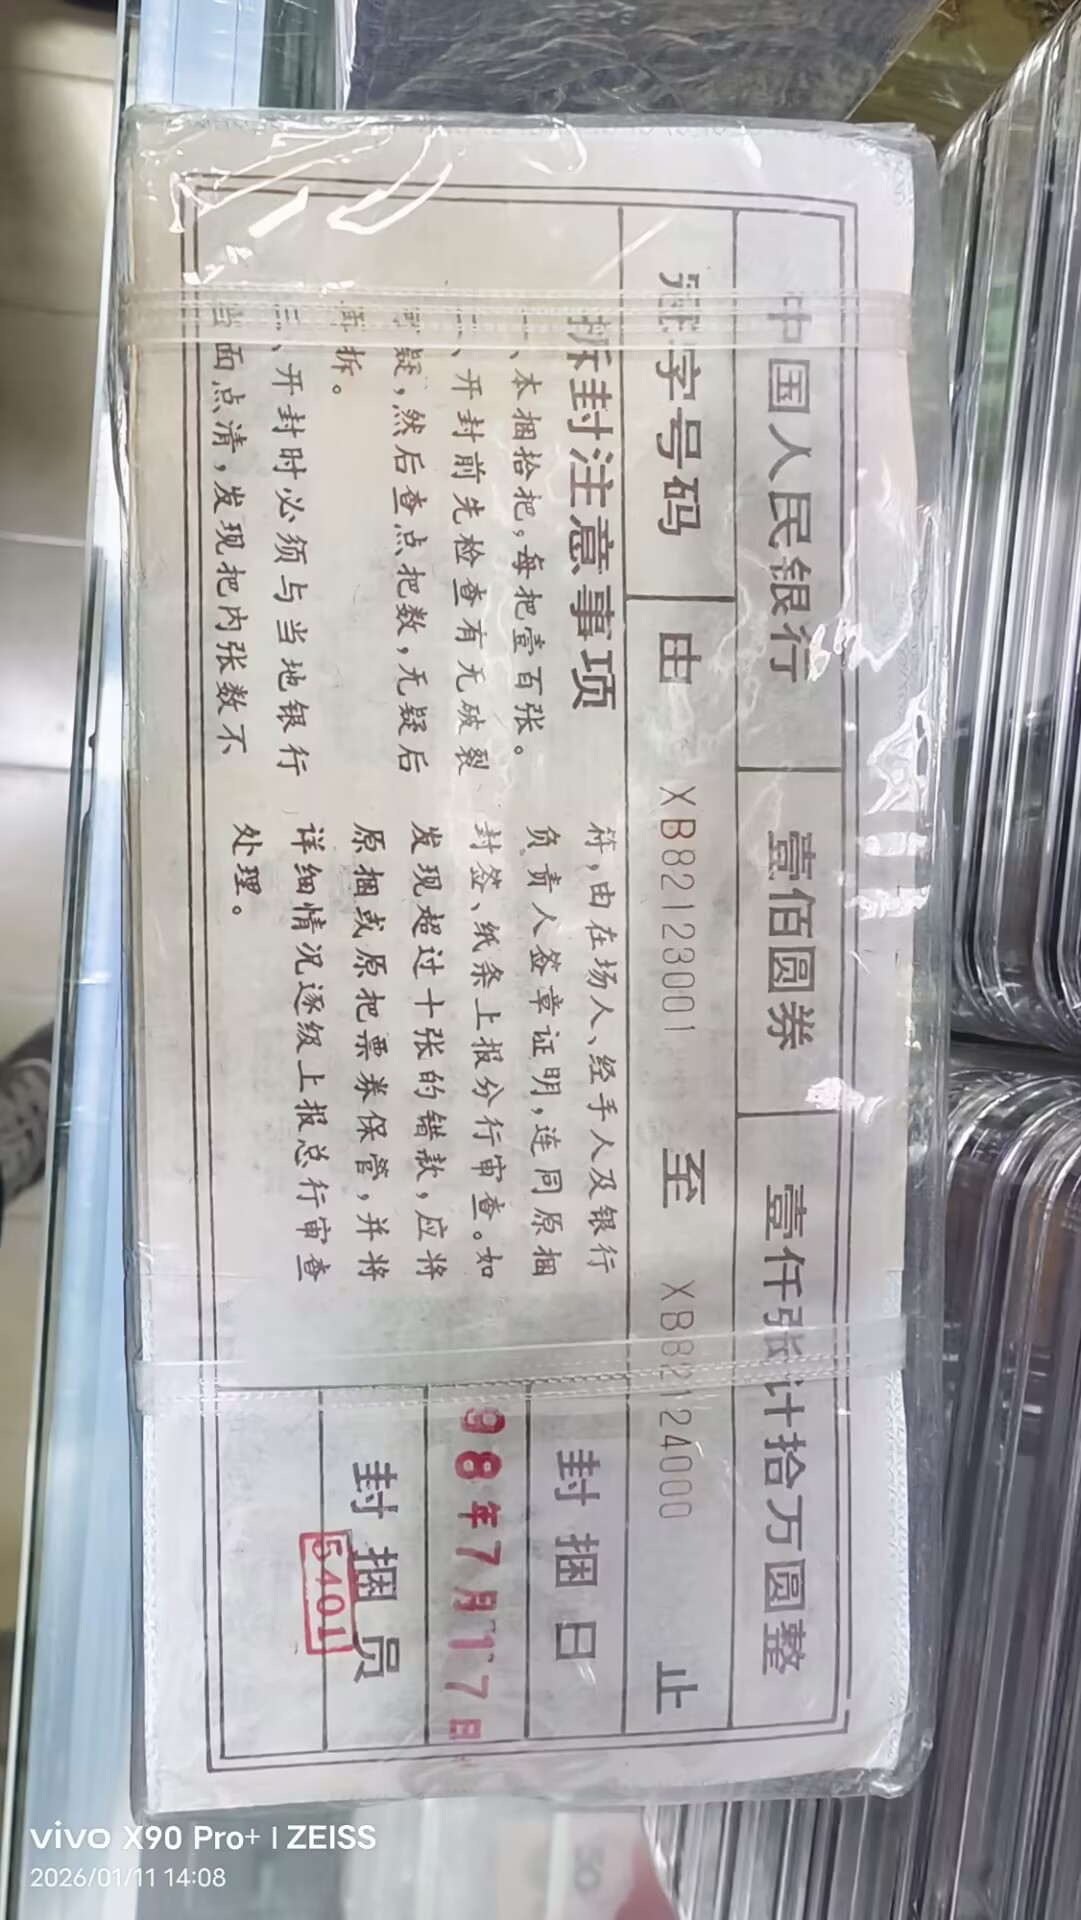 中国人民银行 壹佰圆券 壹仟张计拾万圆整
冠字号码 由 XB82123001 至 XB82124000 止
拆封注意事项
一、本捆拾把，每把壹百张。
二、开封前先检查有无破裂
可疑，然后查点把数，无疑后
再拆。
三、开封时必须与当地银行
当面点清，发现把内张数不
符，由在场人、经手人及银行
负责人签章证明，连同原捆
封签、纸条上报分行审查。如
发现超过十张的错款，应将
原捆或原把票券保管，并将
详细情况逐级上报总行审查
处理。
封捆日
98年7月17日
封捆员
5401
vivo X90 Pro+ | ZEISS
2026/01/11 14:08